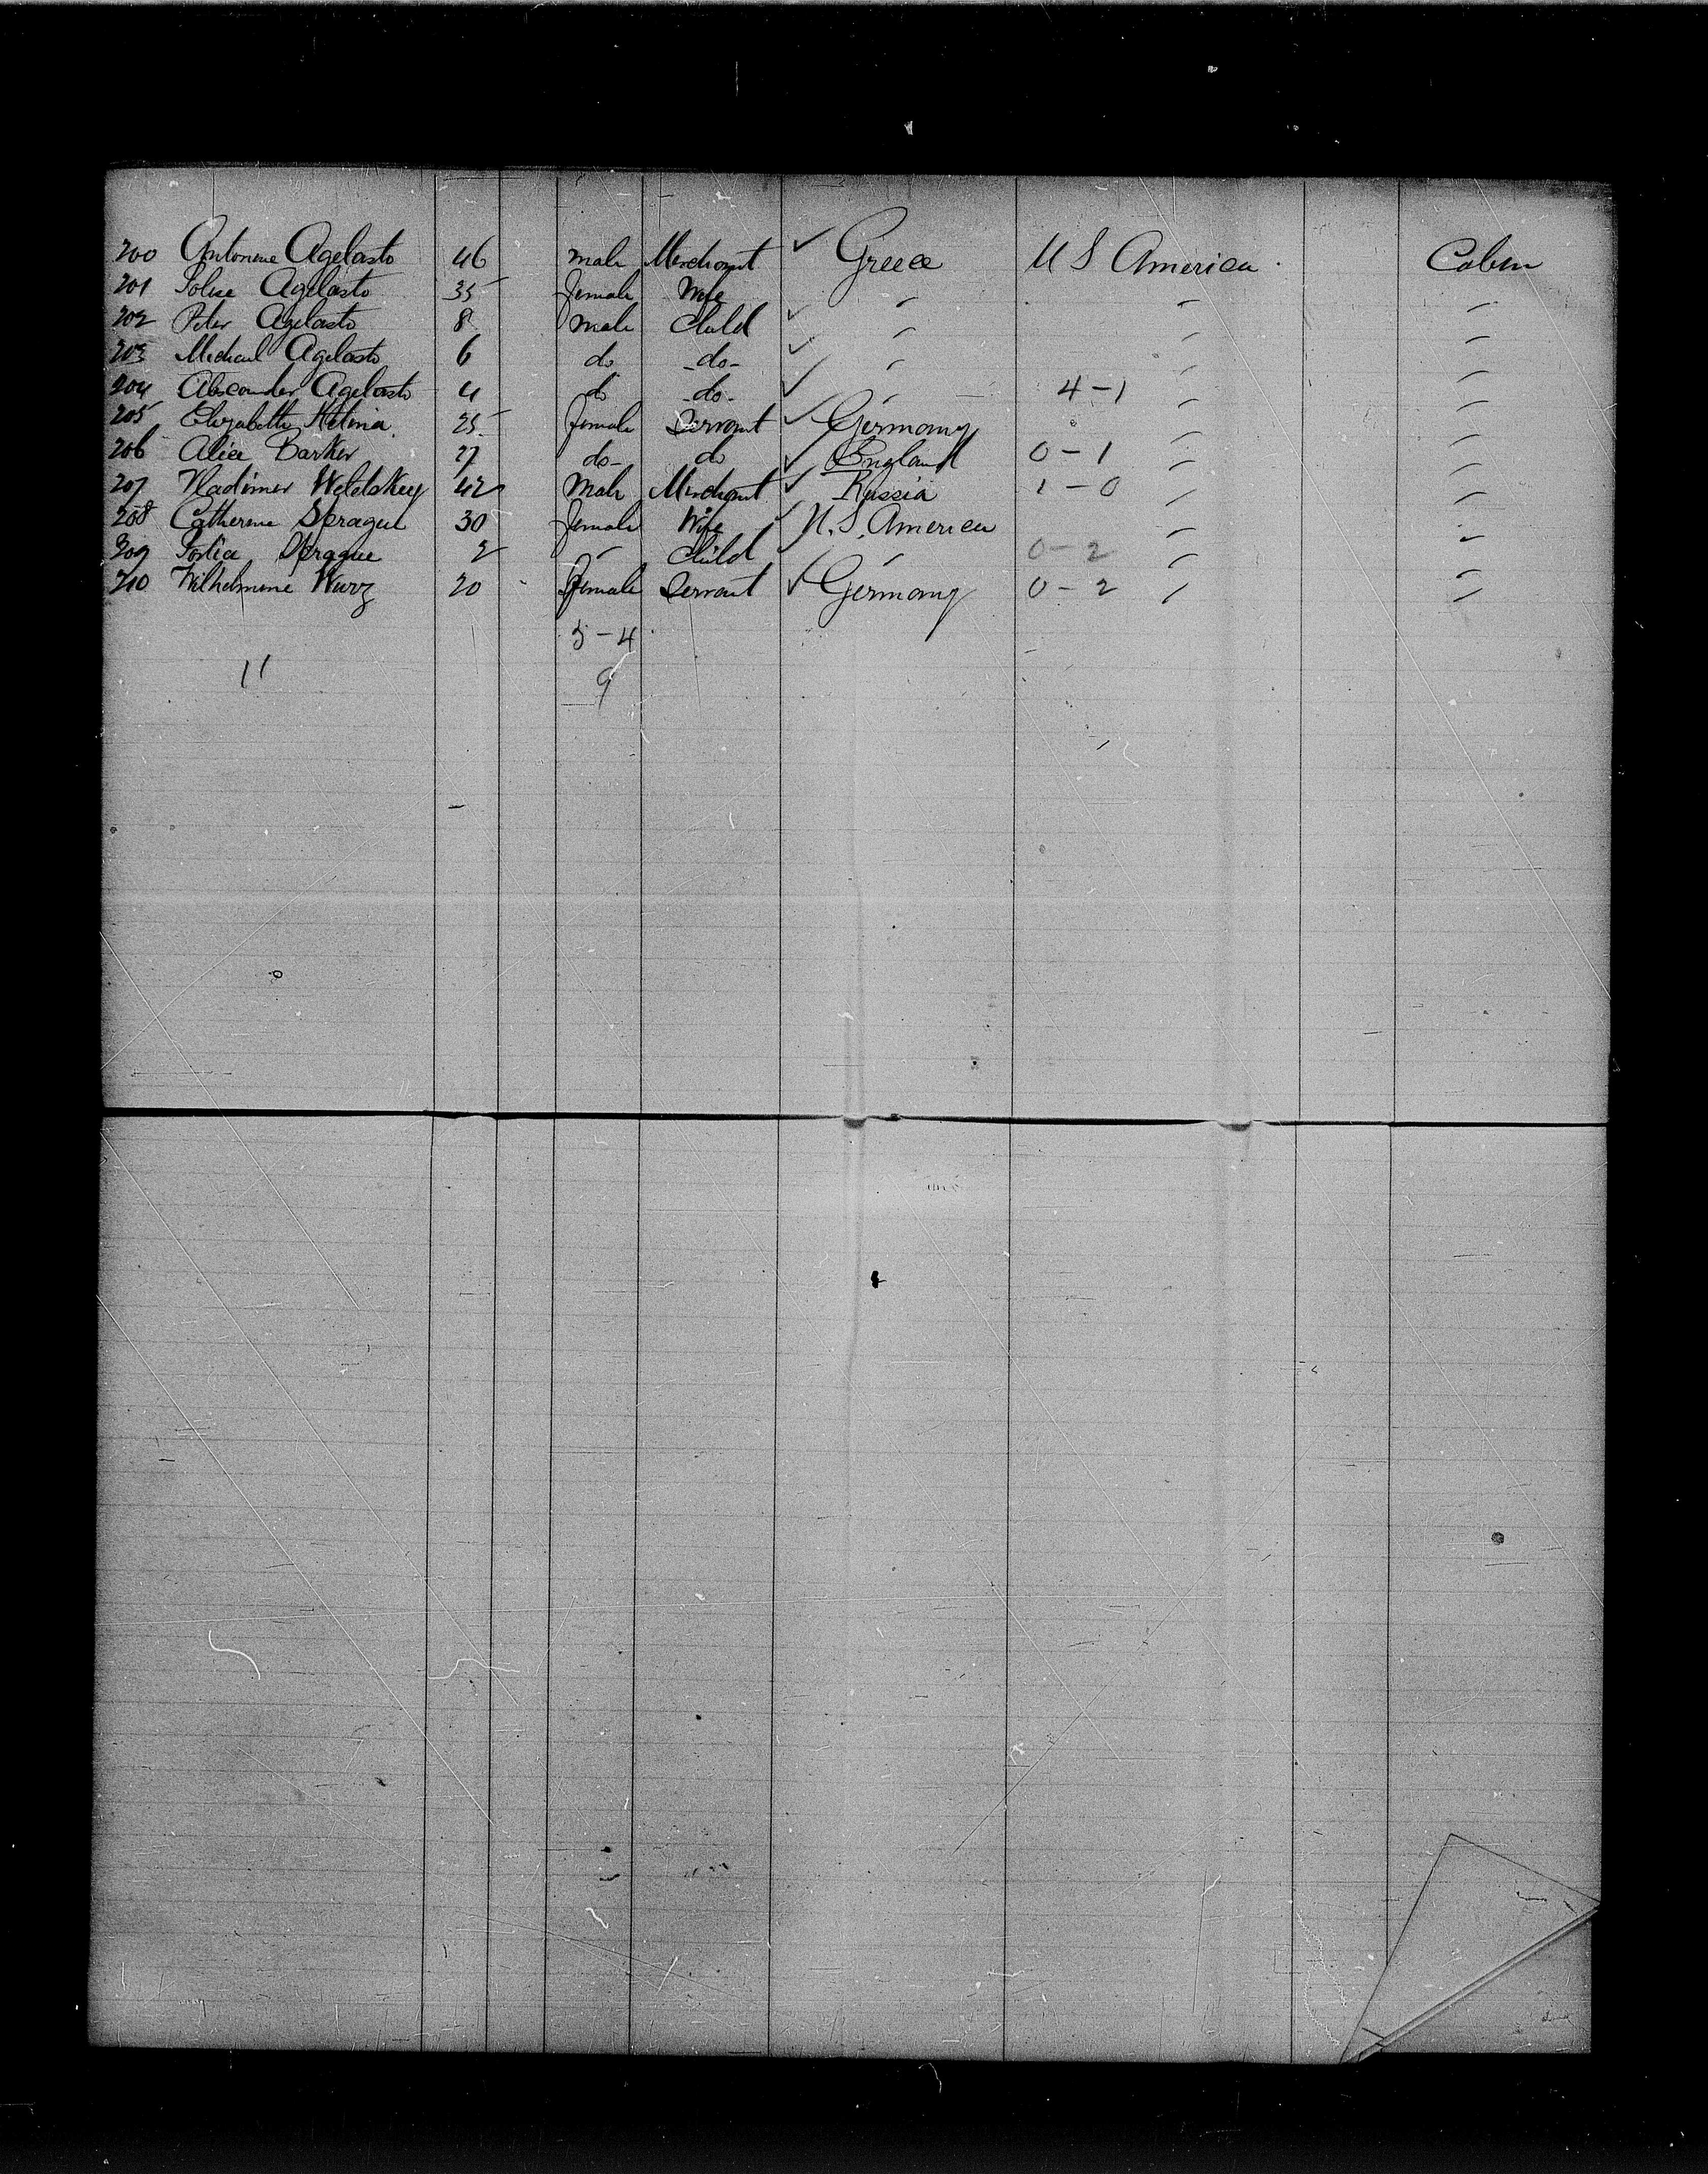 200 Antonine Agelasto 46 male Merchant ✓ Greece U S America Caben
201 Agelasto 35 female Wife " " "
202 Peter Agelasto 8 male Child ✓ " " "
203 Michael Agelasto 6 do -do- ✓ " " "
204 Alexander Agelasto 4 do -do- ✓ 4-1 " "
205 Elizabeth 25 female Servant ✓ Germany " "
206 Alice Barker 27 do- do ✓ England 0-1 " "
207 Vladimer 42 Male Merchant ✓ Russia 1-0 " "
208 Catherine Sprague 30 female Wife ✓ U.S. America " "
209 Sprague 2 " Child 0-2 " "
210 Wilhelmine Wurz 20 female Servant ✓ Germany 0-2 " "
5-4
11 9